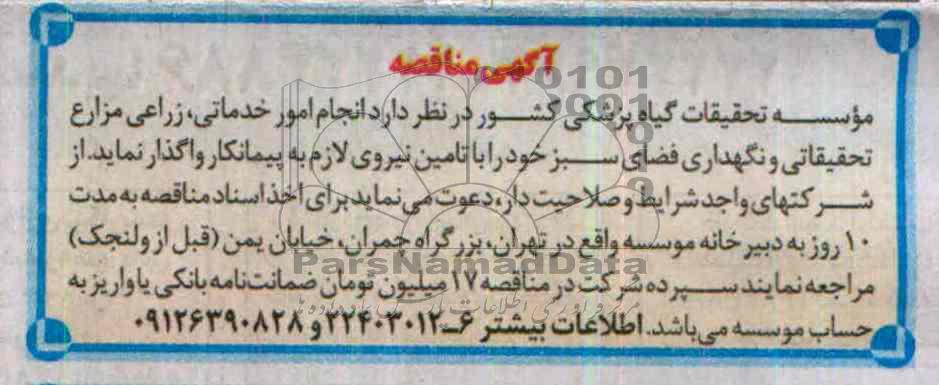 آگهی مناقصه
مؤسسه تحقیقات گیاه پزشکی کشور در نظر دارد انجام امور خدماتی، زراعی مزارع
تحقیقاتی و نگهداری فضای سبز خود را با تامین نیروی لازم به پیمانکار واگذار نماید. از
شرکتهای واجد شرایط و صلاحیت دار، دعوت می نماید برای اخذ اسناد مناقصه به مدت
۱۰ روز به دبیرخانه موسسه واقع در تهران، بزرگراه چمران، خیابان یمن (قبل از ولنجک)
مراجعه نمایند سپرده شرکت در مناقصه ۱۷ میلیون تومان ضمانت نامه بانکی یا واریز به
حساب موسسه می باشد. اطلاعات بیشتر ۶-۲۲۴۰۳۰۱۲ و ۰۹۱۲۶۳۹۰۸۲۸
ParsNamadData